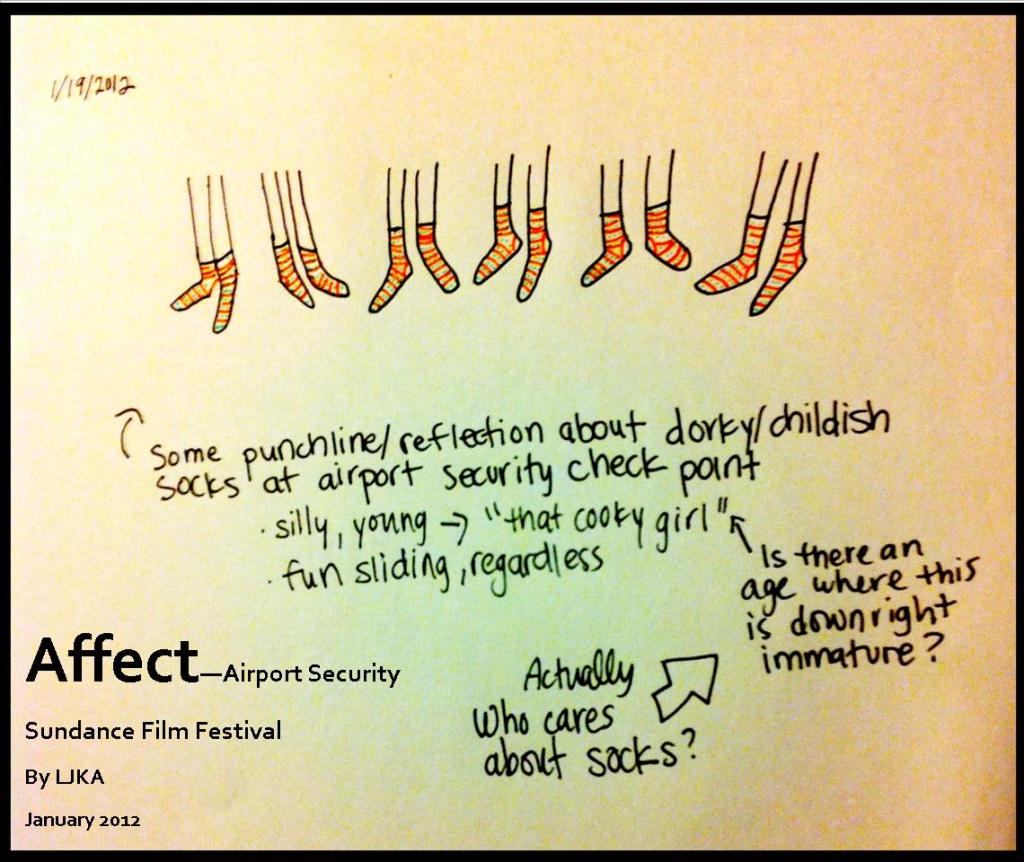 1/19/2012
Some punchline/reflection about dorky/childish
socks at airport security check point
· silly, young → "that cooky girl"
· fun sliding, regardless
Is there an
age where this
is downright
immature?
Actually
Who cares
about socks?
Affect—Airport Security
Sundance Film Festival
By LJKA
January 2012